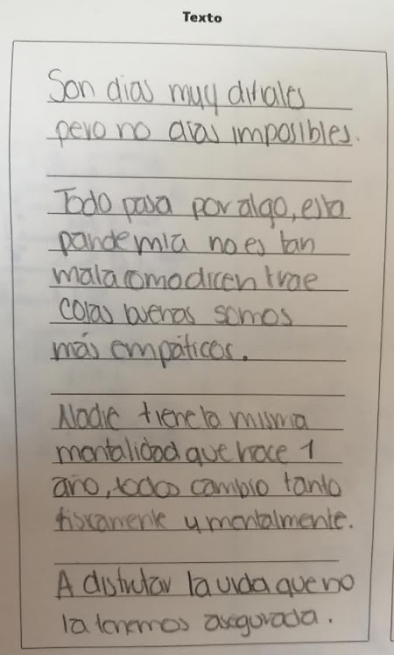 Texto
Son dias muy dificiles
pero no dias imposibles.
Todo pasa por algo, esta
pandemia no es tan
mala como dicen trae
cosas buenas somos
más empáticos.
Nadie tiene la misma
mentalidad que hace 1
año, todos cambio tanto
fisicamente y mentalmente.
A disfrutar la vida que no
la tenemos asegurada.